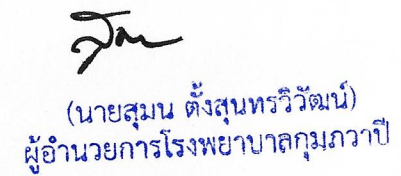 (นายสุมน ตั้งสุนทรวิวัฒน์)
ผู้อำนวยการโรงพยาบาลกุมภวาปี